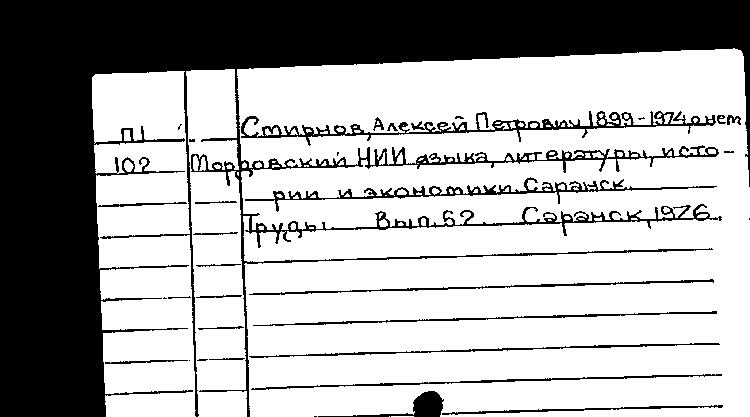 П1 Смирнов, Алексей Петрович, 1899-1974, о нем
102 Мордовский НИИ языка, литературы, исто-
рии и экономики. Саранск.
Труды. Вып. 52. Саранск, 1976.